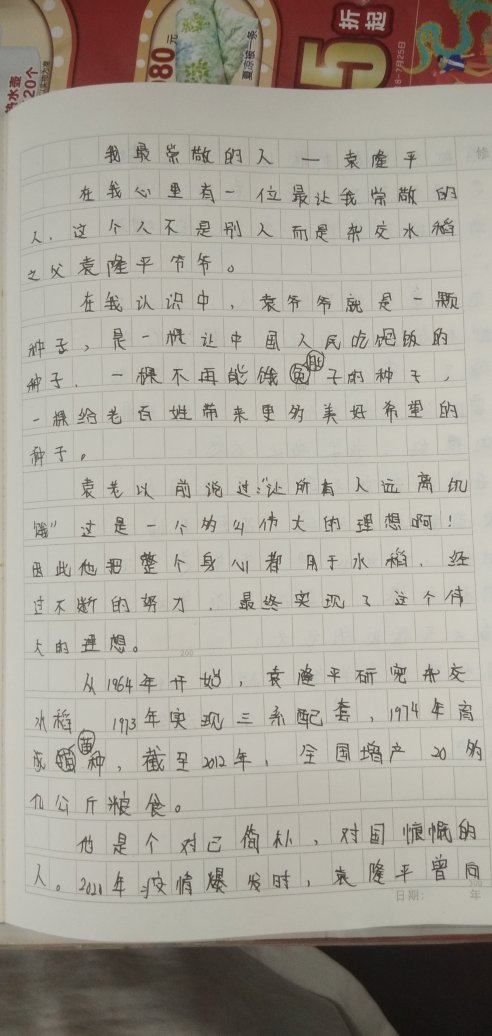 折起
5
8-7月25日
980元
夏凉被一条
热水壶
20个
修
我最崇敬的人 — 袁隆平
在我心里有一位最让我崇敬的
人，这个人不是别人而是杂交水稻
之父袁隆平爷爷。
在我认识中，袁爷爷就是一颗
种子，是一棵让中国人民吃饱饭的
种子，一棵不再能饿肚子的种子，
一棵给老百姓带来更多美好希望的
种子。
袁老以前说过：“让所有人远离饥
饿”这是一个多么伟大的理想啊！
因此他把整个身心都用于水稻，经
过不断的努力，最终实现了这个伟
大的理想。
200
从1964年开始，袁隆平研究杂交
水稻 1973年实现三系配套，1974年育
成苗种，截至2012年，全国增产20多
亿公斤粮食。
他是个对己简朴，对国慷慨的
人。2020年疫情爆发时，袁隆平曾向
日期： 年